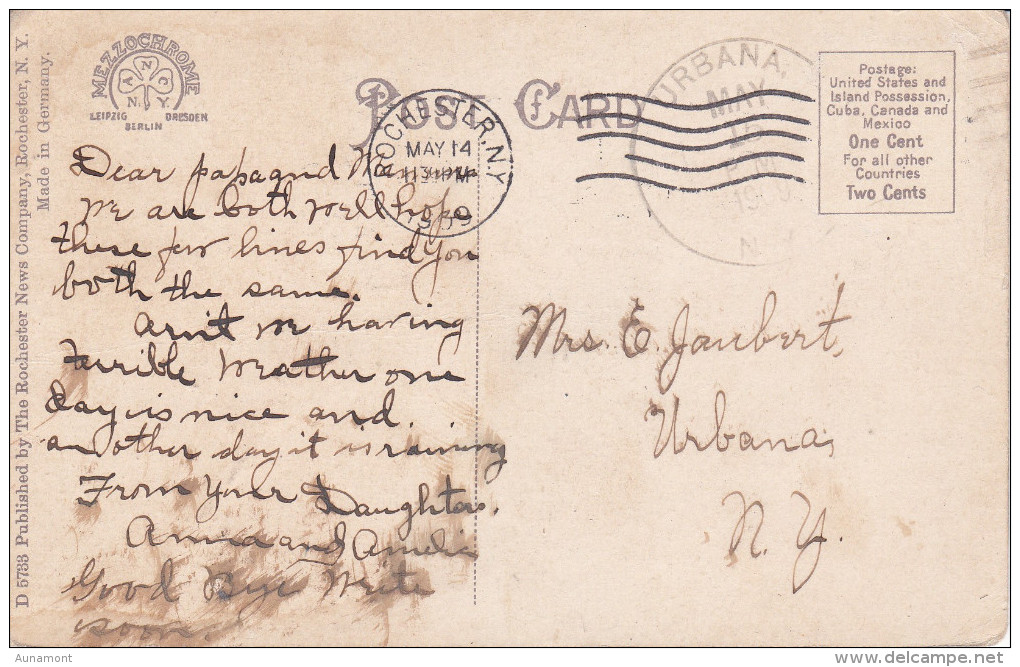 D 5733 Published by The Rochester News Company, Rochester, N. Y.
Made in Germany.
MEZZOCHROME
A N C
N. Y.
LEIPZIG DRESDEN
BERLIN
POST CARD
ROCHESTER, N.Y.
MAY 14
PM
1909
URBANA,
MAY
N. Y.
Postage:
United States and
Island Possession,
Cuba, Canada and
Mexico
One Cent
For all other
Countries
Two Cents
Dear papa and Mamma
We are both well hope
these few lines find you
both the same.
arint we having
terrible weather one
day is nice and
another day it is raining
From your Daughters.
Anna and Amelia
Good Bye Write
soon.
Mrs. E. Jaubert,
Urbana,
N. Y.
Aunamont
delcampe.net